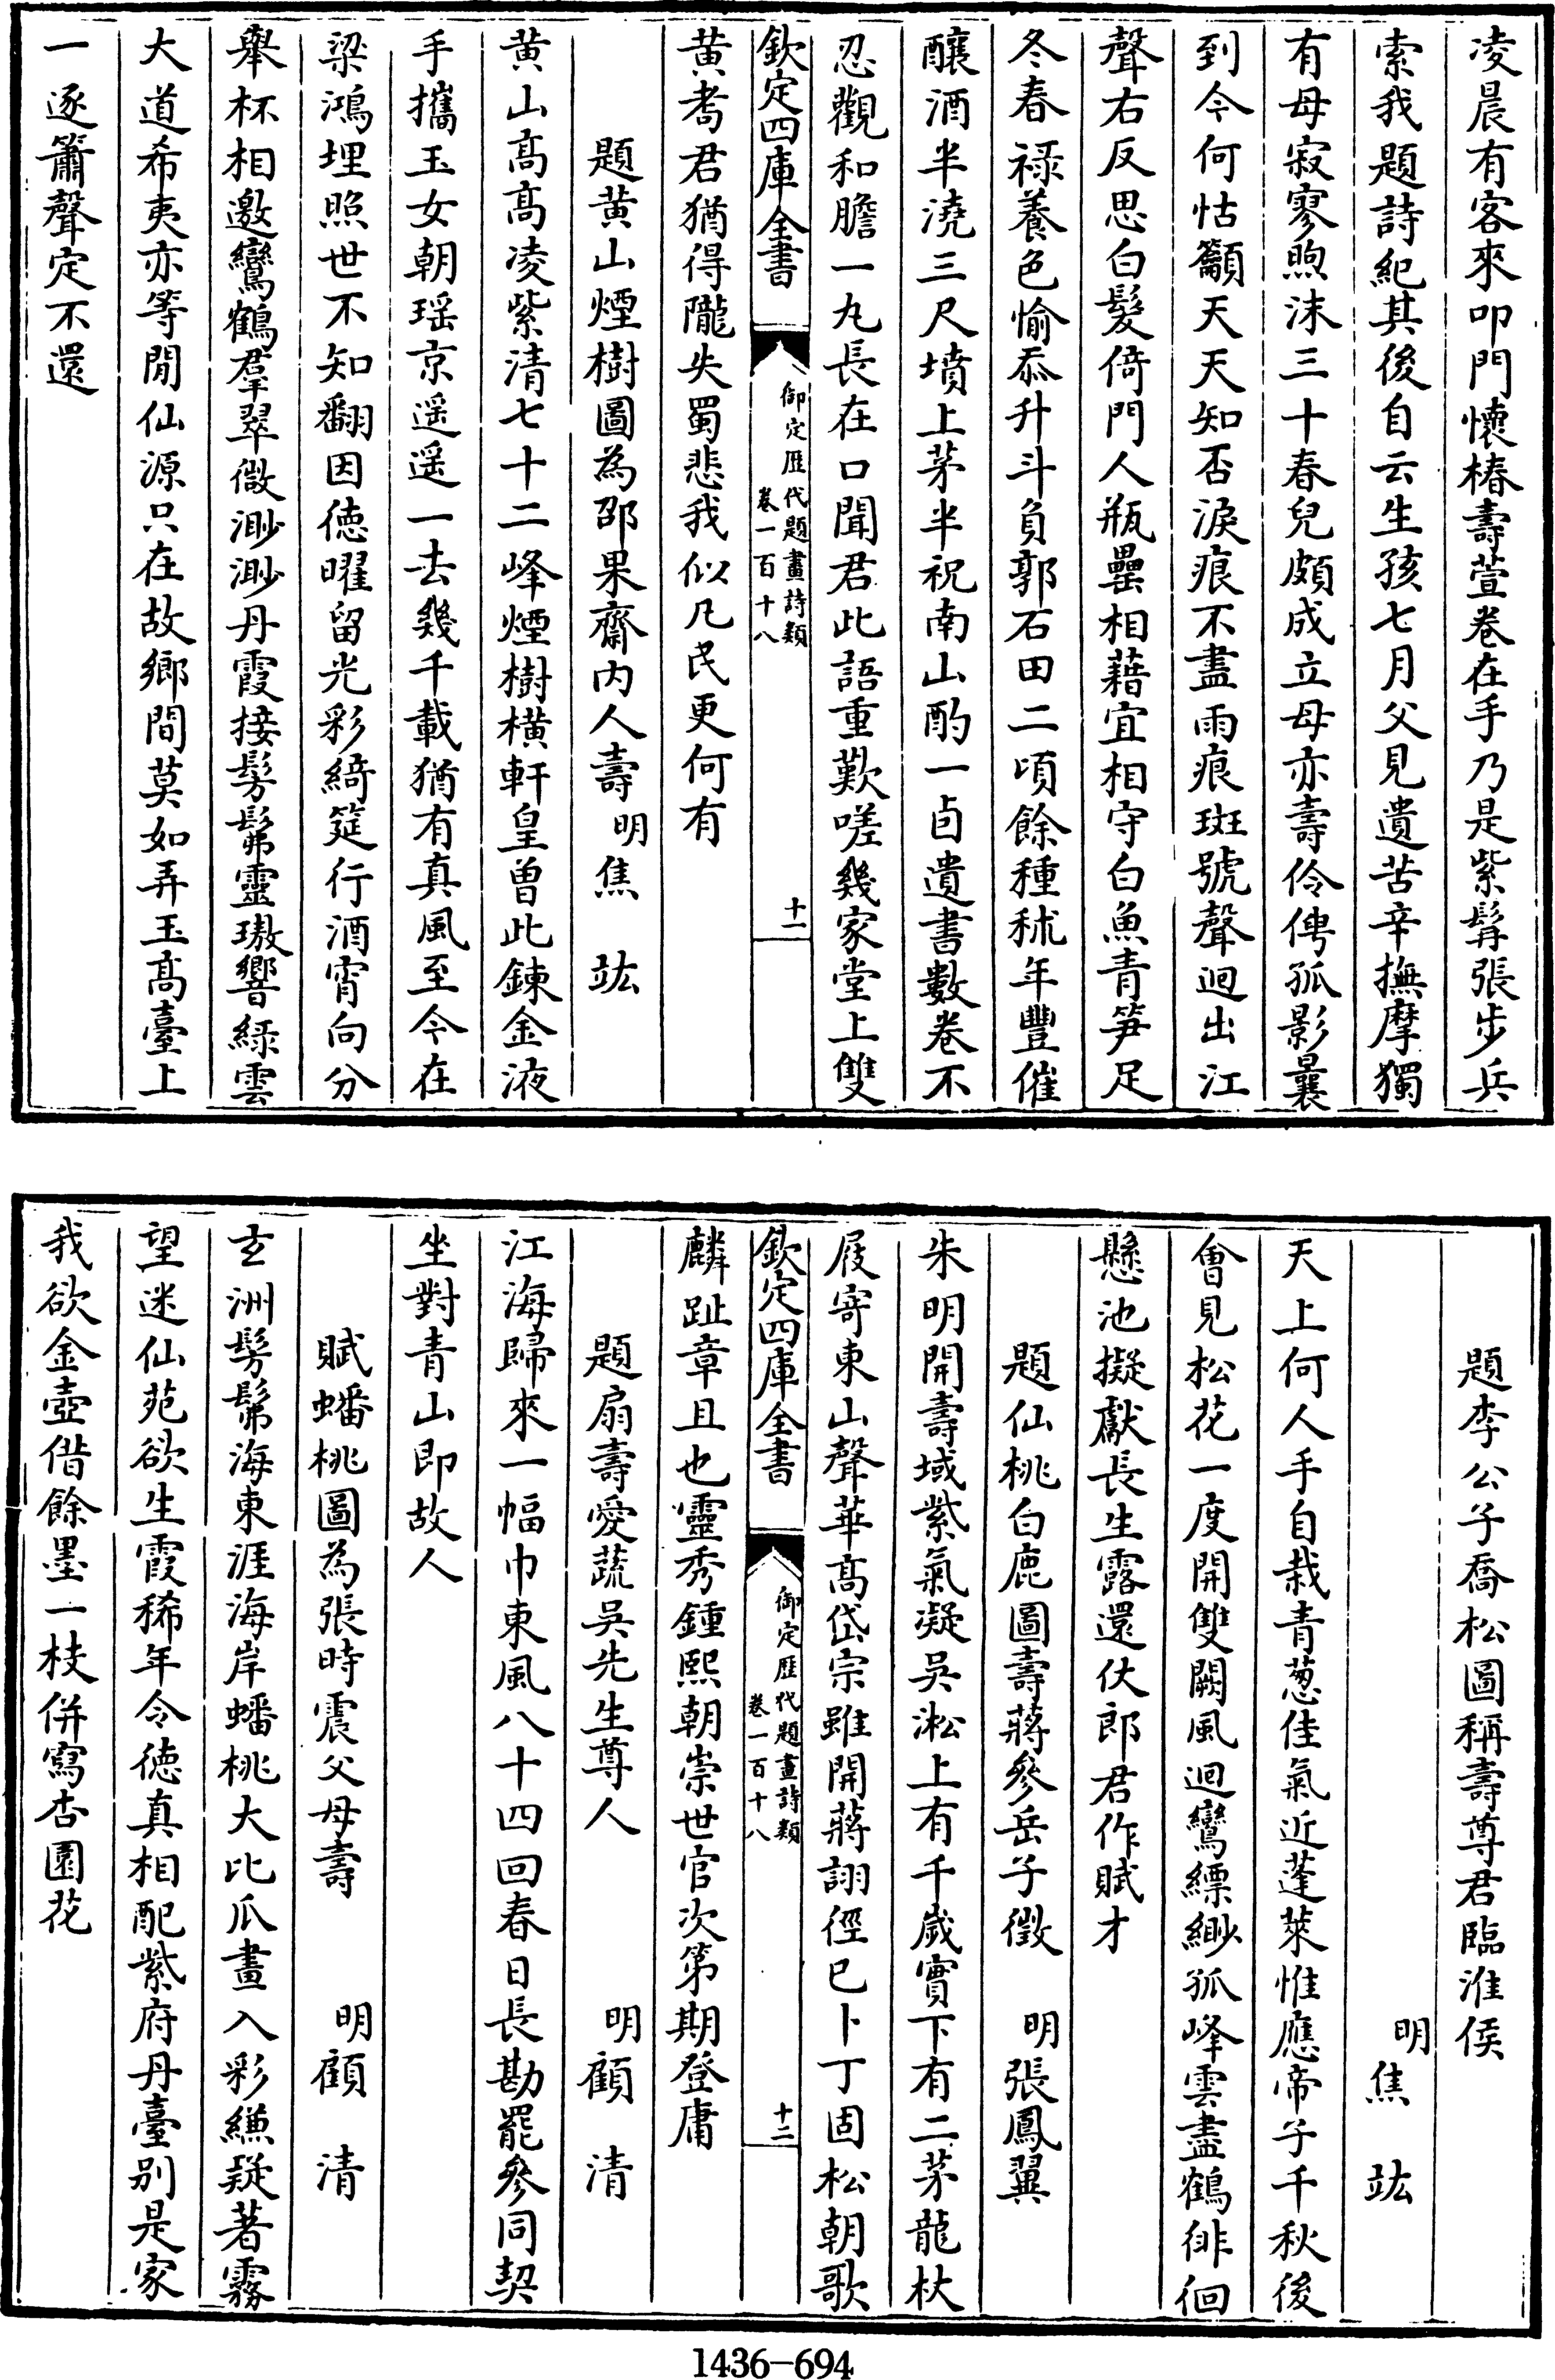 凌晨有客來叩門懷椿壽萱卷在手乃是紫髯張步兵
索我題詩紀其後自云生孩七月父見遺苦辛撫摩獨
有母寂寥煦沫三十春兒頗成立母亦壽伶俜孤影曩
到今何怙籲天天知否淚痕不盡雨痕斑號聲迴出江
聲右反思白髮倚門人瓶罍相藉宜相守白魚青笋足
冬春祿養色愉忝升斗負郭石田二頃餘種秫年豐催
釀酒半澆三尺墳上茅半祝南山酌一卣遺書數卷不
忍觀和膽一丸長在口聞君此語重歎嗟幾家堂上雙
欽定四庫全書
御定歷代題畫詩類
卷一百十八
十一
黃耇君猶得隴失蜀悲我似凡民更何有
題黃山煙樹圖為邵果齋內人壽 明焦竑
黃山高高凌紫清七十二峰煙樹橫軒皇曾此鍊金液
手攜玉女朝瑶京遥遥一去幾千載猶有真風至今在
梁鴻埋照世不知翻因德曜留光彩綺筵行酒宵向分
舉杯相邀鸞鶴羣翠微渺渺丹霞接髣髴靈璈響綠雲
大道希夷亦等閒仙源只在故鄉間莫如弄玉高臺上
一逐簫聲定不還
題李公子喬松圖稱壽尊君臨淮侯
明焦竑
天上何人手自栽青葱佳氣近蓬萊惟應帝子千秋後
會見松花一度開雙闕風迴鸞縹緲孤峰雲盡鶴徘徊
懸池擬獻長生露還伏郎君作賦才
題仙桃白鹿圖壽蔣參岳子徵 明張鳳翼
朱明開壽域紫氣凝吳淞上有千歲實下有二茅龍杖
屐寄東山聲華高岱宗雖開蔣詡徑已卜丁固松朝歌
欽定四庫全書
御定歷代題畫詩類
卷一百十八
十二
麟趾章且也靈秀鍾熙朝崇世官次第期登庸
題扇壽愛蔬吳先生尊人 明顧清
江海歸來一幅巾東風八十四回春日長勘罷參同契
坐對青山即故人
賦蟠桃圖為張時震父母壽 明顧清
玄洲髣髴海東涯海岸蟠桃大比瓜畫入彩縑疑著霧
望迷仙苑欲生霞稀年令德真相配紫府丹臺別是家
我欲金壺借餘墨一枝併寫杏園花
1436-694